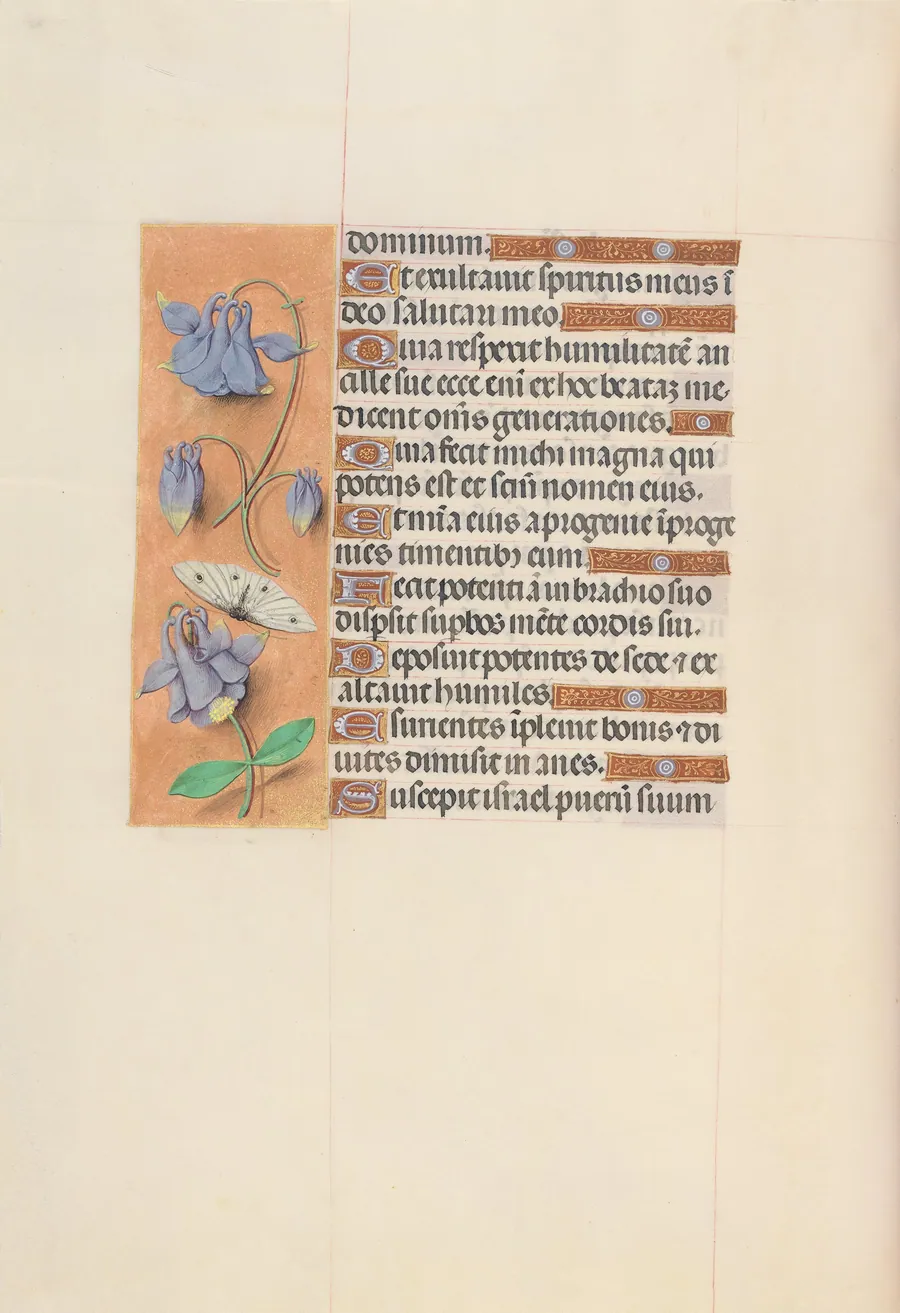 dominum.
Et exultauit spiritus meus ī
deo salutari meo.
Quia respexit humilitatē an
cille sue ecce eni̅ ex hoc beataꝫ me
dicent om̅s generationes.
Quia fecit michi magna qui
potens est et scm̅ nomen eius.
Et mīa eius a progenie īproge
nies timentibꝫ eum.
Fecit potentiā in brachio suo
dispsit supbos mēte cordis sui.
Deposuit potentes de sede ⁊ ex
altauit humiles
Esurientes īpleuit bonis ⁊ di
uites dimisit in anes.
Suscepit israel puerū suum